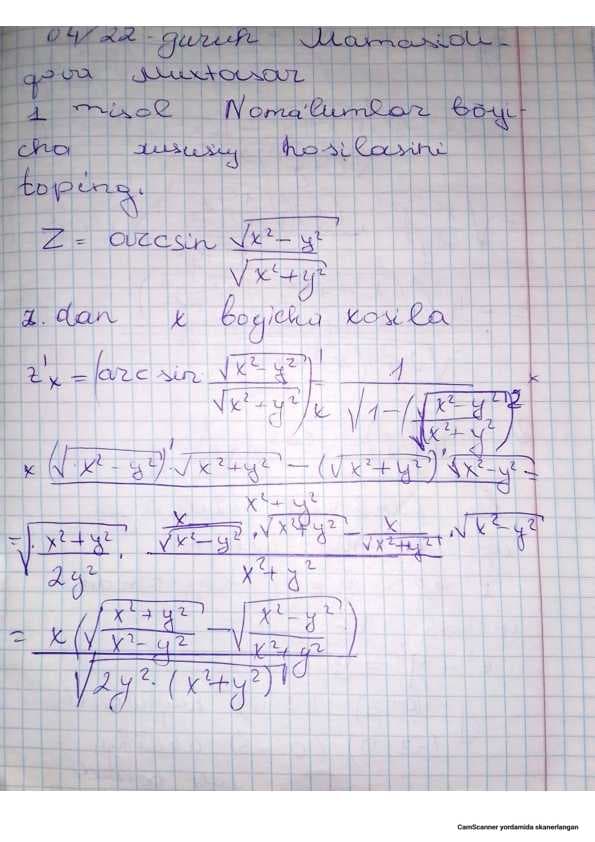 04/22-guruh Mamasidi-
qova Muxtasar
1 misol Noma'lumlar boyi-
cha xususiy hosilasini
toping.
Z = arcsin √(x² - y²) / √(x² + y²)
1. dan x boyicha xosila
z'x = (arcsin √(x² - y²) / √(x² + y²))'x = 1 / √(1 - (√(x² - y²) / √(x² + y²))²) ×
× ((√(x² - y²))' · √(x² + y²) - (√(x² + y²))' · √(x² - y²)) / (x² + y²) =
= √((x² + y²) / 2y²) · (x / √(x² - y²) · √(x² + y²) - x / √(x² + y²) · √(x² - y²)) / (x² + y²)
= x(√((x² + y²) / (x² - y²)) - √((x² - y²) / (x² + y²))) / √(2y² · (x² + y²))
CamScanner yordamida skanerlangan